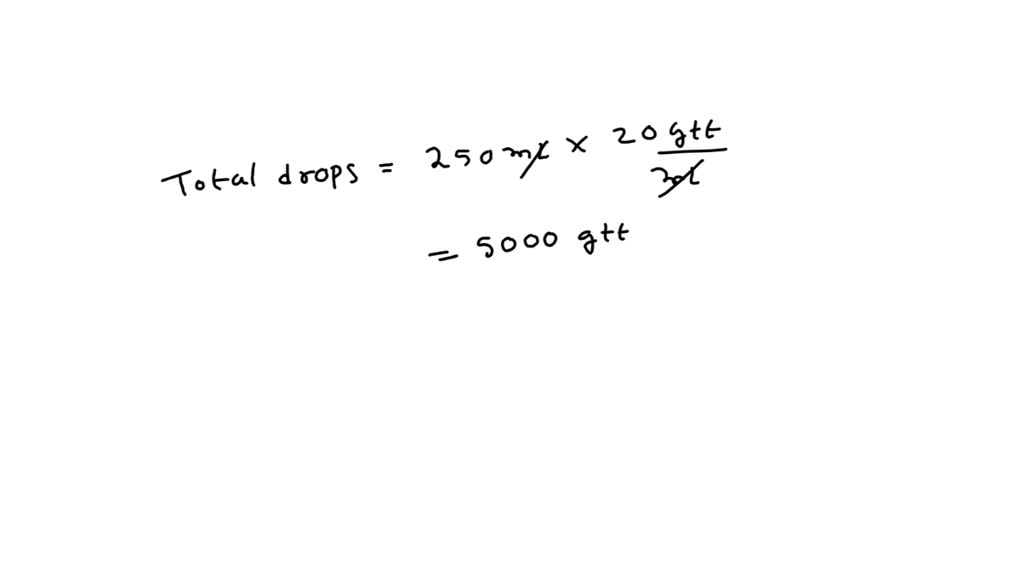 Total drops = 250 ml × 20 gtt/ml
= 5000 gtt